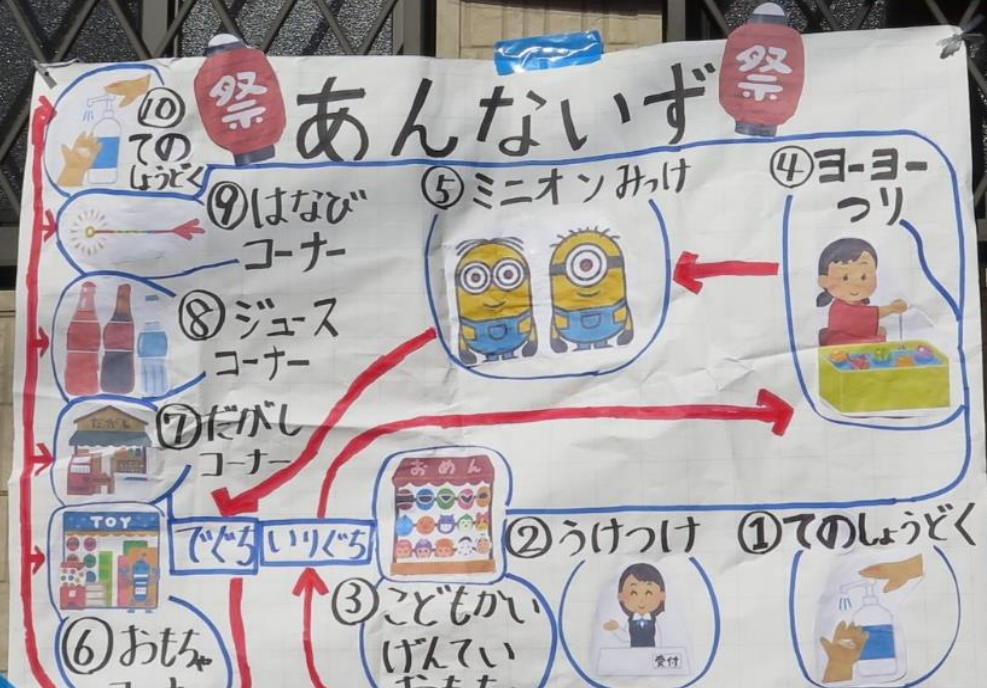 祭 あんないず 祭
⑩
ての
しょうどく
⑨はなび
コーナー
⑧ジュース
コーナー
⑦だがし
コーナー
TOY
⑥おもちゃ
コーナー
でぐち
いりぐち
⑤ミニオンみっけ
④ヨーヨー
つり
おめん
③こどもかい
げんてい
②うけつけ
受付
①てのしょうどく